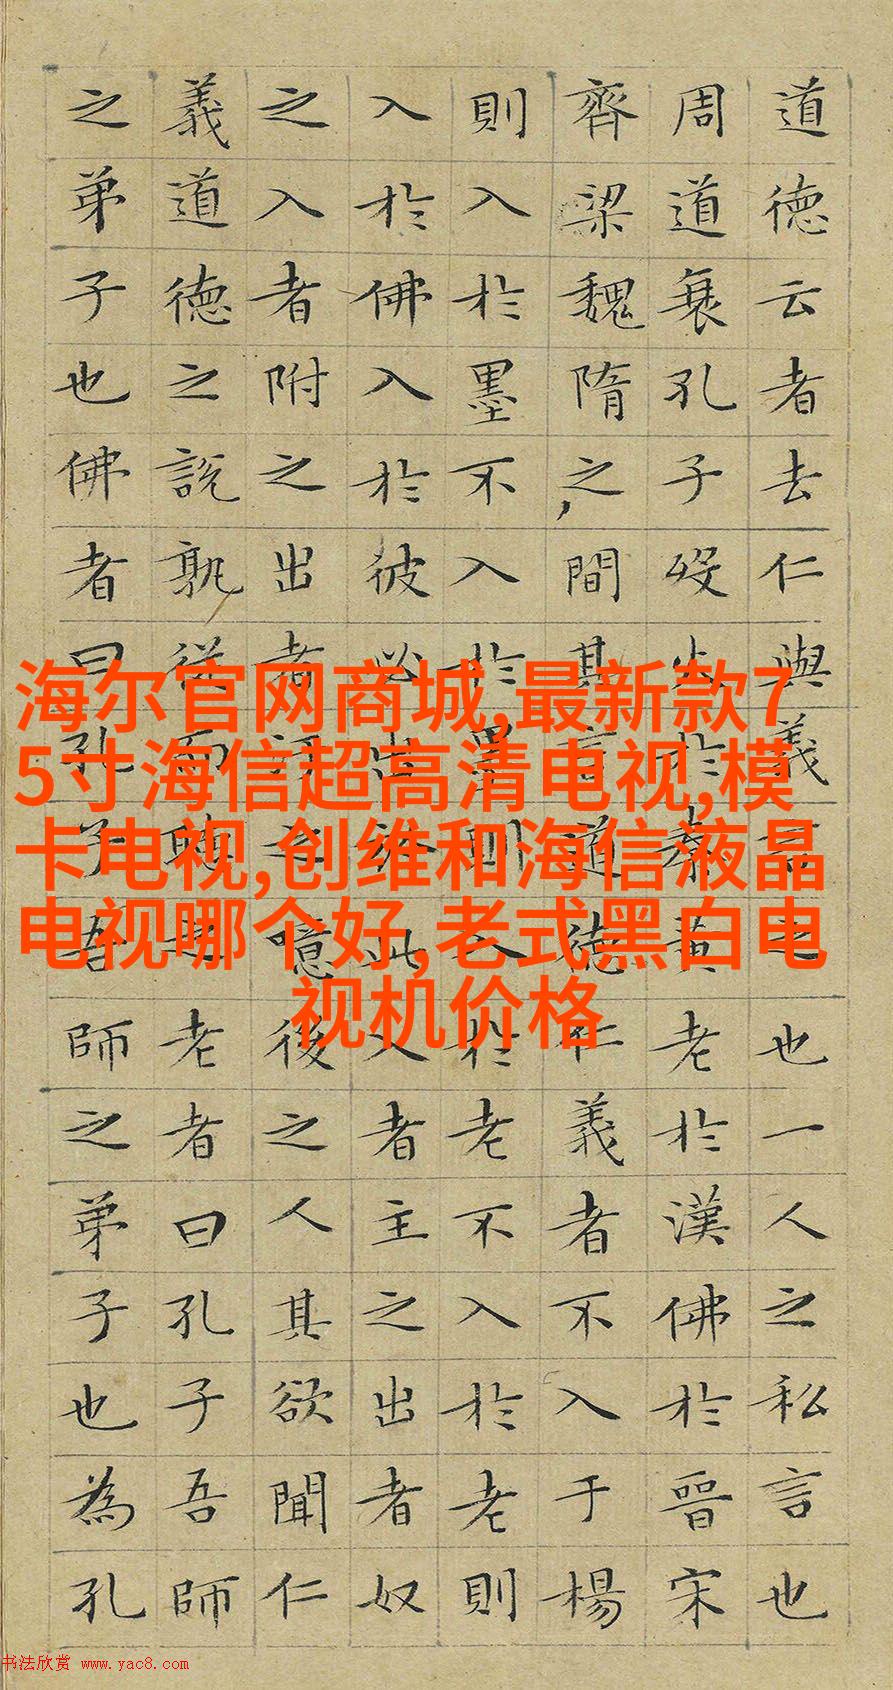 道德云者去仁與義言之也一人之私言也
周道衰孔子歿火於秦黃老於漢佛於晉宋
齊梁魏隋之間其言道德仁義者不入于楊
則入於墨不入於墨則入於老不入於老則
入於佛入於彼必出於此入者主之出者奴
之入者附之出者汙之噫後之人其欲聞仁
義道德之說孰從而聽之老者曰孔子吾師
之弟子也佛者曰孔子吾師之弟子也為孔
海尔官网商城,最新款7
5寸海信超高清电视,模
卡电视,创维和海信液晶
电视哪个好,老式黑白电
视机价格
书法欣赏 www.yac8.com